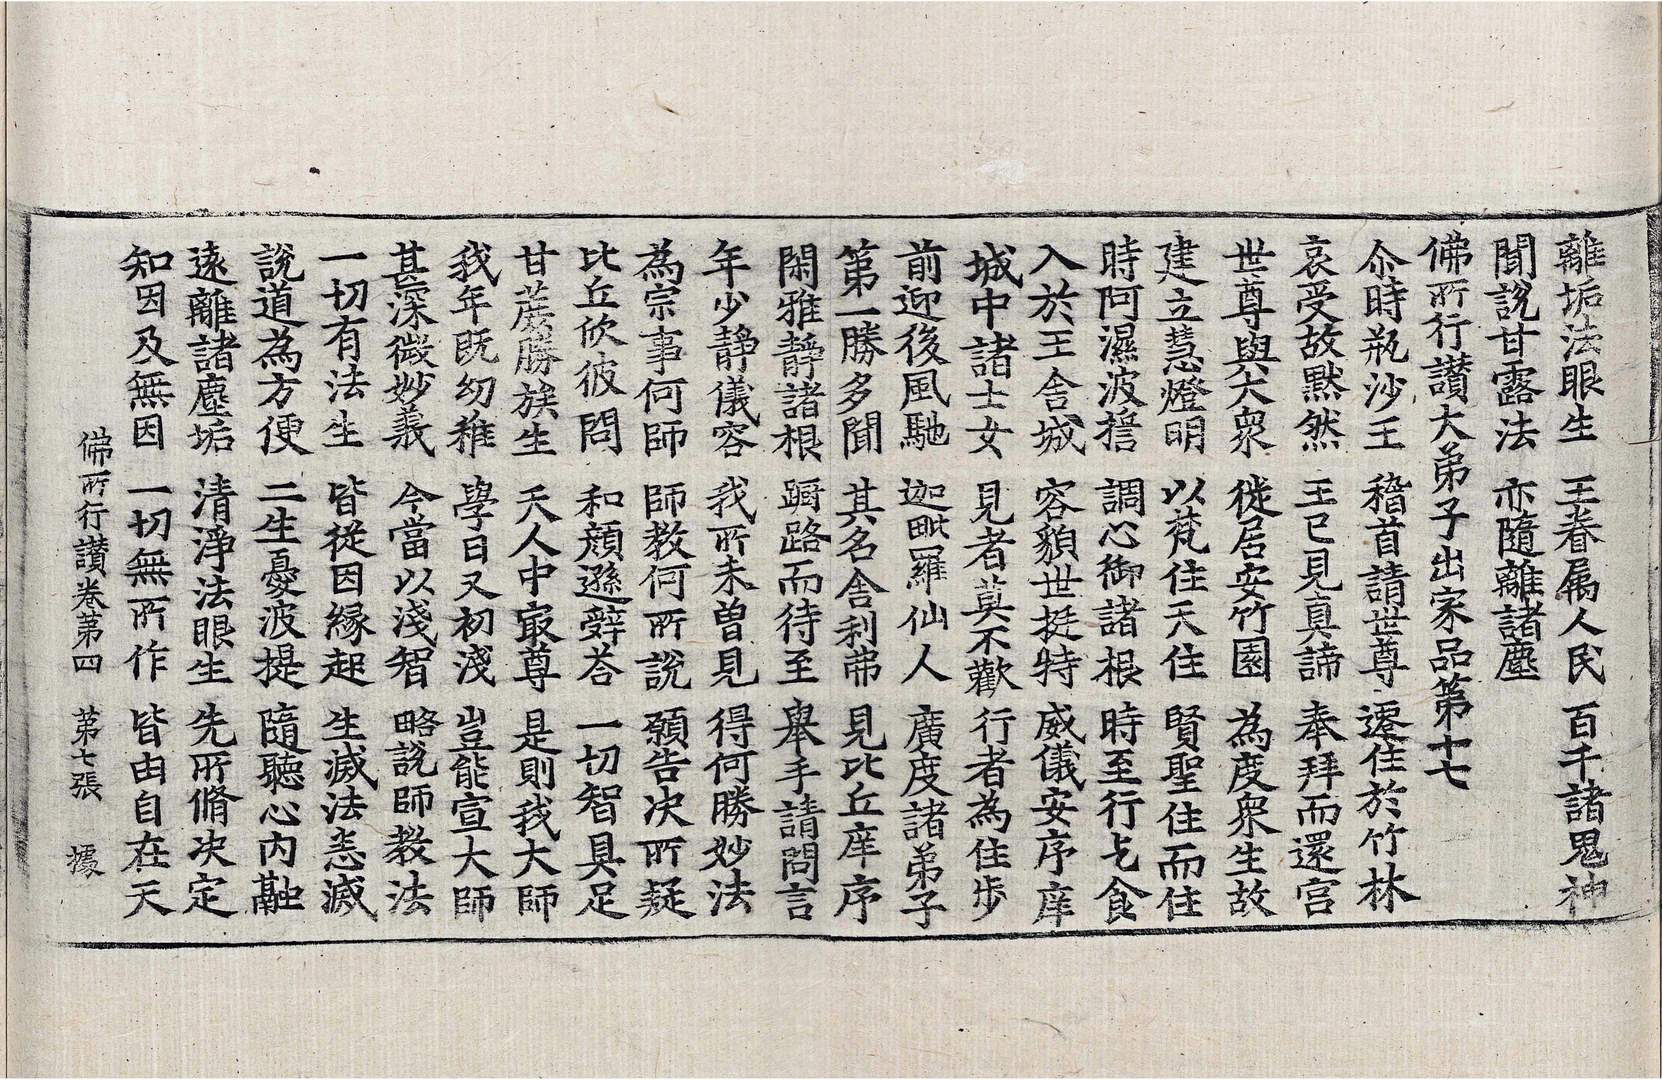 離垢法眼生 王眷属人民 百千諸鬼神
聞說甘露法 亦隨離諸塵
佛所行讃大弟子出家品第十七
尒時瓶沙王 稽首請世尊 遷住於竹林
哀受故默然 王已見真諦 奉拜而還宫
世尊與大衆 徙居安竹園 為度衆生故
建立慧燈明 以梵住天住 賢聖住而住
時阿濕波誓 調心御諸根 時至行乞食
入於王舍城 容貌世挺特 威儀安序庠
城中諸士女 見者莫不歡 行者為住步
前迎後風馳 迦毗羅仙人 廣度諸弟子
第一勝多聞 其名舍利弗 見比丘庠序
閑雅静諸根 躕路而待至 舉手請問言
年少静儀容 我所未曽見 得何勝妙法
為宗事何師 師教何所說 願告决所疑
比丘欣彼問 和顏遜辝荅 一切智具足
甘蔗勝族生 天人中冣尊 是則我大師
我年既幼稚 學日又初淺 豈能宣大師
甚深微妙義 今當以淺智 略說師教法
一切有法生 皆從因緣起 生滅法悉滅
說道為方便 二生憂波提 隨聽心内融
遠離諸塵垢 清淨法眼生 先所脩决定
知因及無因 一切無所作 皆由自在天
佛所行讃卷第四 第七張 據